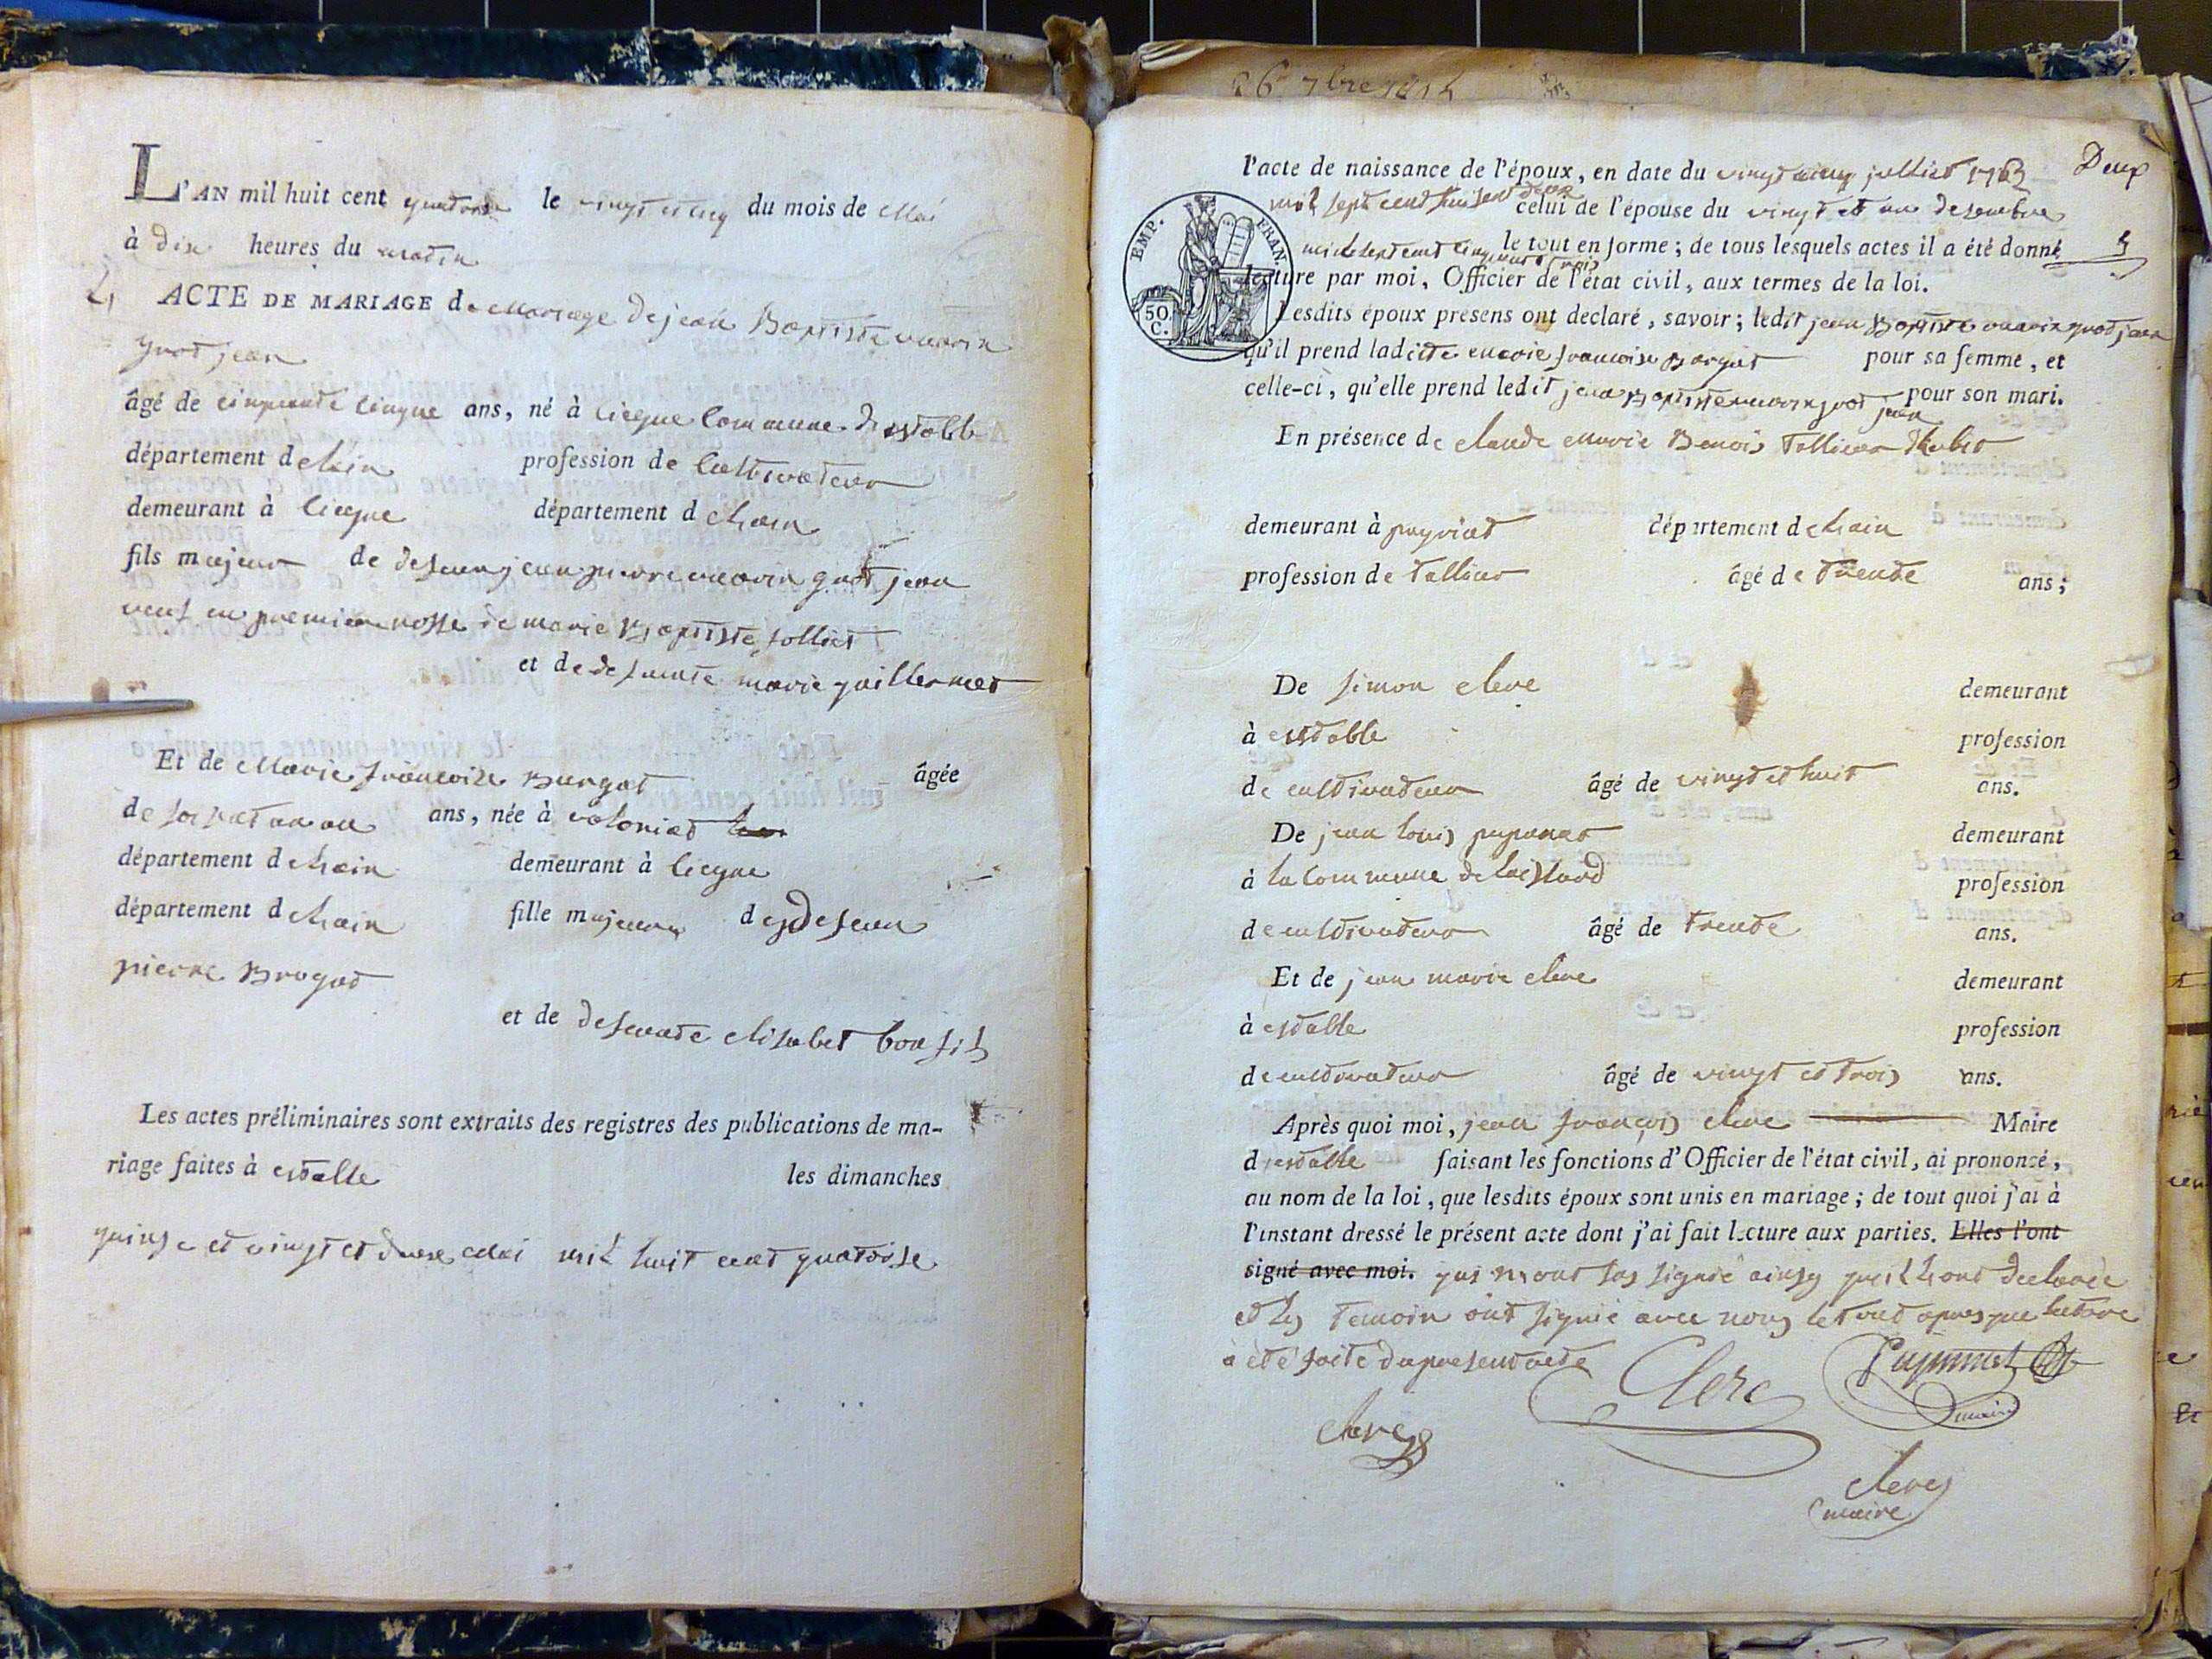 L'AN mil huit cent quatorse le vingt et cinq du mois de Mai
à dix heures du matin
ACTE DE MARIAGE de Mariage de jean Baptiste marin
quot jean
âgé de cinquante cinque ans, né à liegne Commune destable
département de lain profession de Cultivateur
demeurant à liegne département de Lain
fils majeur de defeun jean pierre marin quot jean
veuf en premiere nosse de marie Baptiste jolliet
et de defeunte marie guillermet
Et de Marie françoise Burgat âgée
de ans, née à voloniat
département de Lain demeurant à liegne
département de Lain fille majeure des defeun
pierre Brogat
et de defeunte elisabet bon fils
Les actes préliminaires sont extraits des registres des publications de ma-
riage faites à estable les dimanches
quinse et vingt et deux Mai mil huit cent quatorse
26 7bre 1814
l'acte de naissance de l'époux, en date du vingt cinq julliet 1762 Deux
mil sept cent celui de l'épouse du vingt et un desembre
mil sept cent le tout en forme ; de tous lesquels actes il a été donné
lecture par moi, Officier de l'état civil, aux termes de la loi.
EMP. FRAN. 50. C.
Lesdits époux présens ont declaré, savoir ; ledit jean Baptiste marin quot jean
qu'il prend ladite marie francoise Borgat pour sa femme, et
celle-ci, qu'elle prend ledit jean Baptiste marin quot jean pour son mari.
En présence de claude marie Benois Tallieur
demeurant à peyriat département de Lain
profession de tallieur âgé de trente ans ;
De simon clerc demeurant
à estable profession
de cultivateur âgé de vingt et huit ans.
De jean louis pupunat demeurant
à la Commune de profession
de cultivateur âgé de trente ans.
Et de jean marie clerc demeurant
à estable profession
de cultivateur âgé de vingt et trois ans.
Après quoi moi, jean françois clerc Maire
destable faisant les fonctions d'Officier de l'état civil, ai prononcé,
au nom de la loi, que lesdits époux sont unis en mariage ; de tout quoi j'ai à
l'instant dressé le présent acte dont j'ai fait lecture aux parties. Elles l'ont
signé avec moi. qui n'ont pas signé ainsy declarée
et les temoin ont signié avec nous le tout apres que lectture
à été faite du present acte
Clerc
clerc
clerc
maire